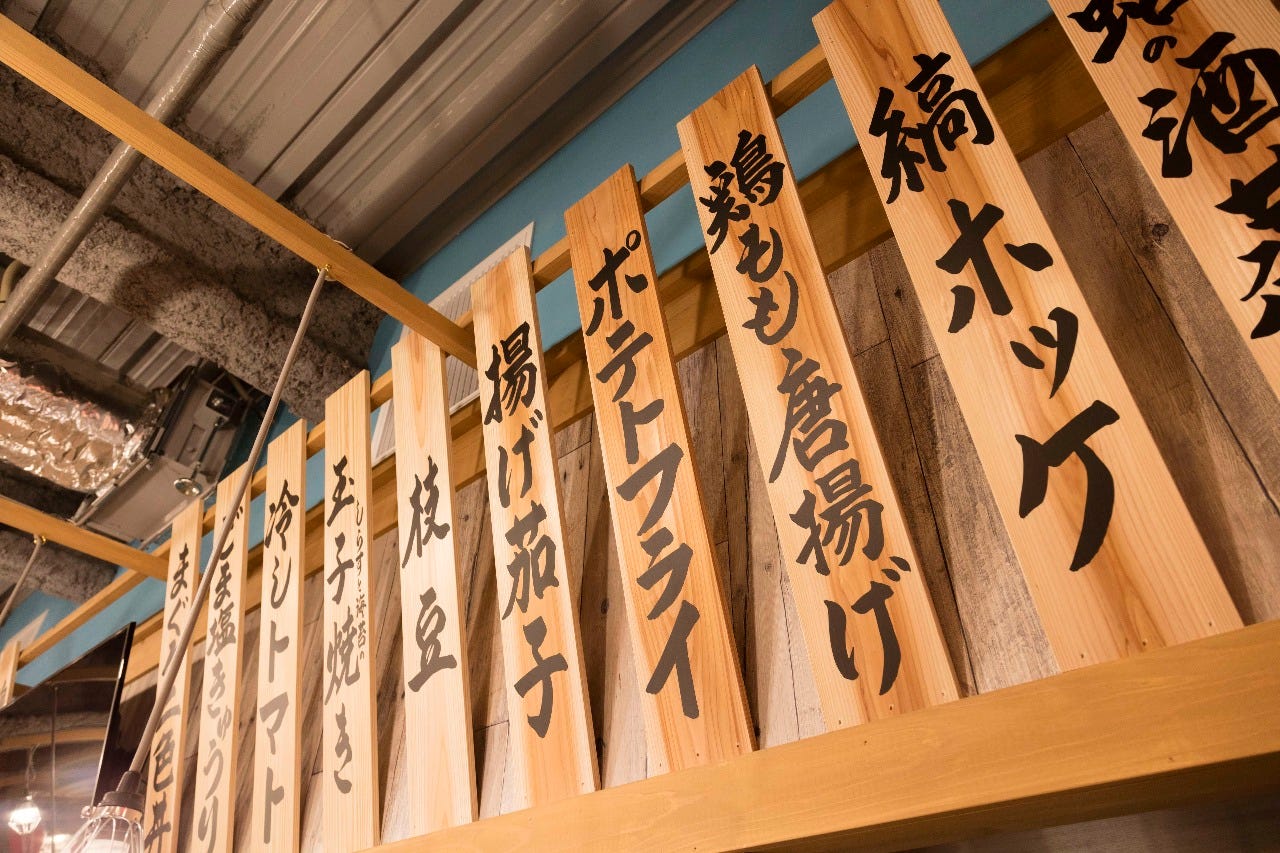 の酒蒸
縞ホッケ
鶏もも唐揚げ
ポテトフライ
揚げ茄子
枝豆
しらすと海苔の
玉子焼き
冷しトマト
ごま塩きゅうり
まぐろ二色丼